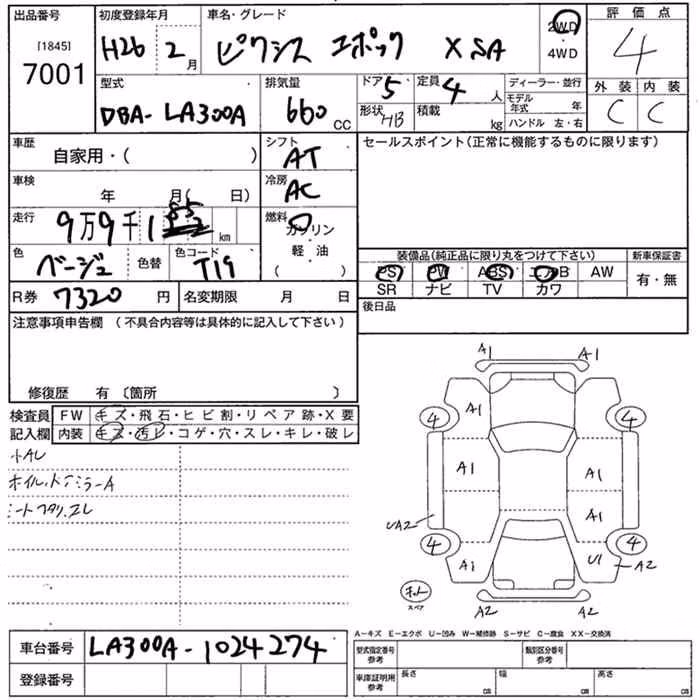 出品番号 初度登録年月 車名・グレード 2WD 評価点
[1845] H26 2月 ピクシス エポック X SA 4WD 4
7001
型式 排気量 ドア 5 定員 4人 ディーラー・並行 外装 内装
DBA-LA300A 660 CC 形状 HB 積載 kg モデル年式 年 C C
ハンドル 左・右
車歴 シフト セールスポイント(正常に機能するものに限ります)
自家用・( ) AT
車検 冷房
年 月( 日) AC
走行 9万9千1 km 燃料 ガソリン
色 ベージュ 色替 色コード T19 軽油
( )
装備品(純正品に限り丸をつけて下さい) 新車保証書
PS PW ABS エアB AW 有・無
SR ナビ TV カワ
R券 7320 円 名変期限 月 日 後日品
注意事項申告欄 (不具合内容等は具体的に記入して下さい)
修復歴 有 〔箇所 〕
検査員 FW キズ・飛石・ヒビ割・リペア跡・X要
記入欄 内装 キズ・汚レ・コゲ・穴・スレ・キレ・破レ
小AU
A1 A1
4 A1 4
A1 A1
A1
UA2
4 4
A1 U1 A2
スペア
A2 A2
A−キズ E−エクボ U−凹み W−補修跡 S−サビ C−腐食 XX−交換済
車台番号 LA300A-1024274 型式指定番号 参考 類別区分番号 参考
登録番号 車庫証明用 参考 長さ cm 幅 cm 高さ cm